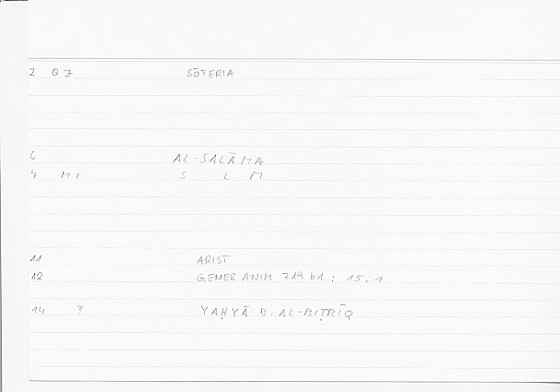 2 Q7 SŌTERIA
6 AL-SALĀMA
4 M1 S L M
11 ARIST
12 GENER ANIM 719 b1 : 15,1
14 ? YAḤYĀ B. AL-BIṬRĪQ